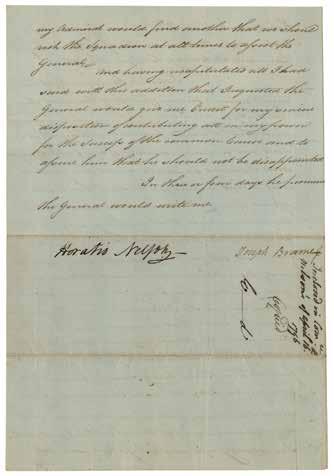 my Admiral would find another that we should
risk the Squadron at all times to assist the
General,
And having recapitulated all I had
said with this addition that I requested the
General would give me Credit for my sincere
disposition of contributing all in my power
for the Success of the common Cause and to
assure him that he should not be disappointed
In three or four days he promised
the General would write me
Horatio Nelson
Joseph Brame
Inclosed in Com
Nelson's of April 16
1796
Copied